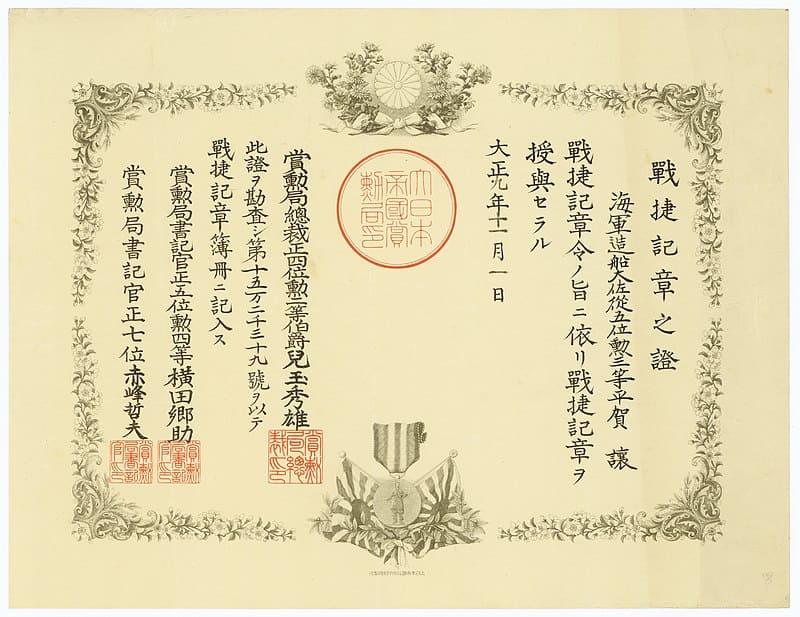 戰捷記章之證
海軍造船大佐從五位勲三等平賀 讓
戰捷記章令ノ旨ニ依リ戰捷記章ヲ
授與セラル
大正九年十一月一日
大日本
帝國賞
勲局印
賞勲局總裁正四位勲二等伯爵兒玉秀雄
賞勲
局總
裁印
此證ヲ勘査シ第十五万二千三十九號ヲ以テ
戰捷記章簿冊ニ記入ス
賞勲局書記官正五位勲四等橫田鄉助
賞勲
局書記
官印
賞勲局書記官正七位赤峰哲夫
賞勲
局書記
官印